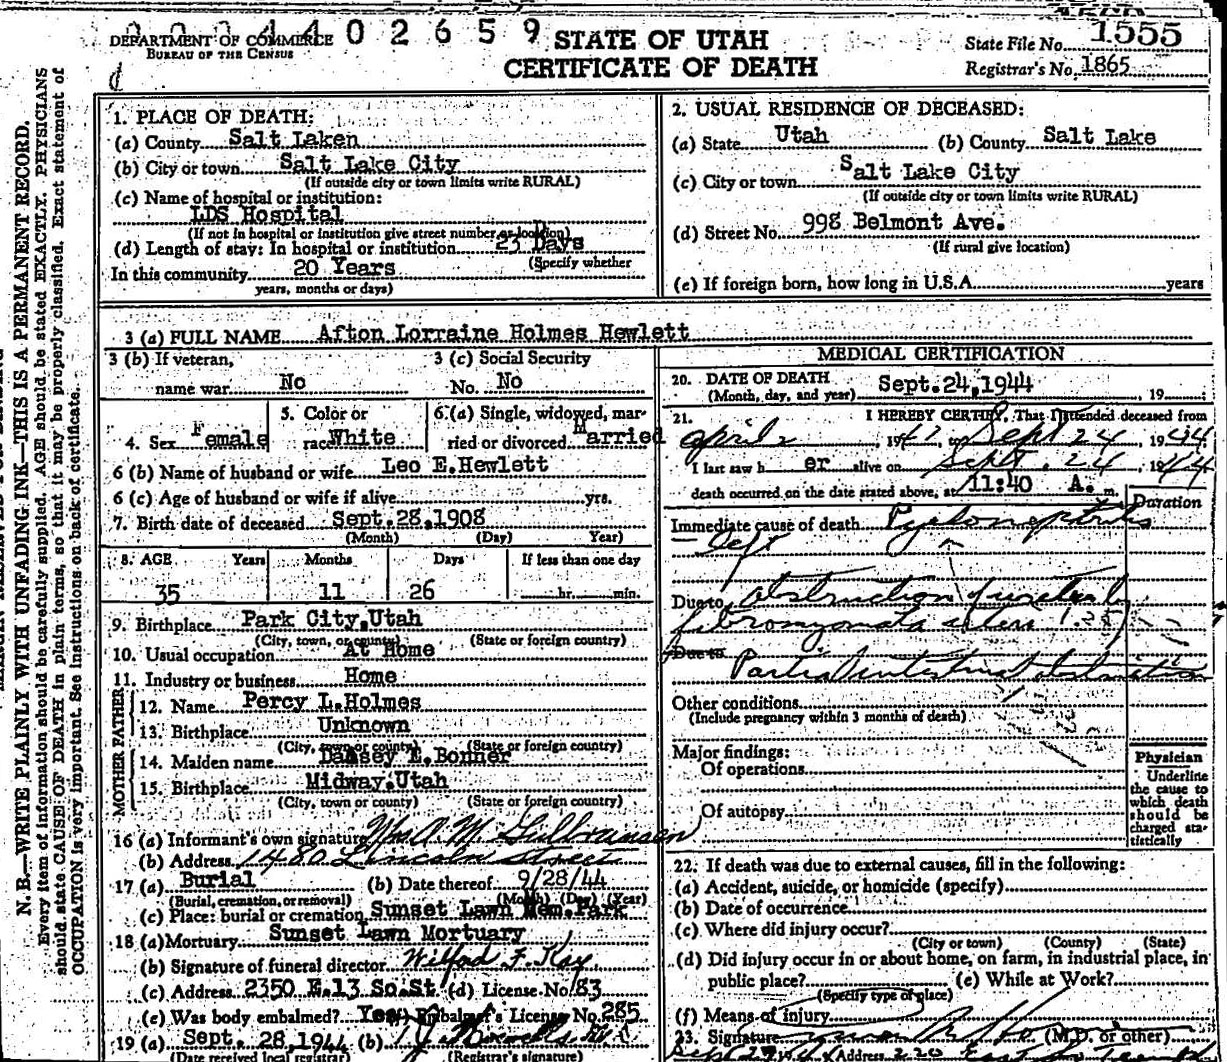 0 0 3 4 4 0 2 6 5 9
DEPARTMENT OF COMMERCE
BUREAU OF THE CENSUS
STATE OF UTAH
CERTIFICATE OF DEATH
State File No. 1555
Registrar's No. 1865
N. B.—WRITE PLAINLY WITH UNFADING INK—THIS IS A PERMANENT RECORD.
Every item of information should be carefully supplied. AGE should be stated EXACTLY. PHYSICIANS
should state CAUSE OF DEATH in plain terms, so that it may be properly classified. Exact statement of
OCCUPATION is very important. See instructions on back of certificate.
1. PLACE OF DEATH:
(a) County Salt Laken
(b) City or town Salt Lake City
(If outside city or town limits write RURAL)
(c) Name of hospital or institution:
LDS Hospital
(If not in hospital or institution give street number or location)
(d) Length of stay: In hospital or institution 23 Days
(Specify whether
In this community 20 Years
years, months or days)
2. USUAL RESIDENCE OF DECEASED:
(a) State Utah (b) County Salt Lake
(c) City or town Salt Lake City
(If outside city or town limits write RURAL)
(d) Street No. 998 Belmont Ave.
(If rural give location)
(e) If foreign born, how long in U.S.A. years
3 (a) FULL NAME Afton Lorraine Holmes Hewlett
3 (b) If veteran,
name war No
3 (c) Social Security
No. No
4. Sex Female
5. Color or
race White
6.(a) Single, widowed, mar-
ried or divorced Married
6 (b) Name of husband or wife Leo E.Hewlett
6 (c) Age of husband or wife if alive yrs.
7. Birth date of deceased Sept.28,1908
(Month) (Day) Year)
8. AGE Years Months Days If less than one day
35 11 26 hr. min.
9. Birthplace Park City,Utah
(City, town, or county) (State or foreign country)
10. Usual occupation At Home
11. Industry or business Home
FATHER
12. Name Percy L.Holmes
13. Birthplace Unknown
(City, town or county) (State or foreign country)
MOTHER
14. Maiden name E.Bonner
15. Birthplace Midway,Utah
(City, town or county) (State or foreign country)
16 (a) Informant's own signature M. Gulbransen
(b) Address 1480 Lincoln Street
17 (a) Burial (b) Date thereof 9/28/44
(Burial, cremation, or removal) (Month) (Day) (Year)
(c) Place: burial or cremation Sunset Lawn Mem.Park
18 (a) Mortuary Sunset Lawn Mortuary
(b) Signature of funeral director Wilford F. Kay
(c) Address 2350 E.13 So.St. (d) License No. 83
(e) Was body embalmed? Yes Embalmer's License No. 285
19 (a) Sept. 28,1944 (b)
(Date received local registrar) (Registrar's signature)
MEDICAL CERTIFICATION
20. DATE OF DEATH Sept.24,1944
(Month, day, and year) , 19
21. I HEREBY CERTIFY, That I attended deceased from
April 2 , 19 to Sept 24 , 1944
I last saw h er alive on Sept. 24 , 1944
death occurred on the date stated above, at 11:40 A. m.
Duration
Immediate cause of death Pyelonephritis
left
Due to obstruction of ureter by
fibromyomata uteri
Due to
Partial intestinal obstruction
Other conditions
(Include pregnancy within 3 months of death)
Major findings:
Of operations
Of autopsy
Physician
Underline
the cause to
which death
should be
charged sta-
tistically
22. If death was due to external causes, fill in the following:
(a) Accident, suicide, or homicide (specify)
(b) Date of occurrence
(c) Where did injury occur?
(City or town) (County) (State)
(d) Did injury occur in or about home, on farm, in industrial place, in
public place? (e) While at Work?
(Specify type of place)
(f) Means of injury
23. Signature (M.D. or other)
Address